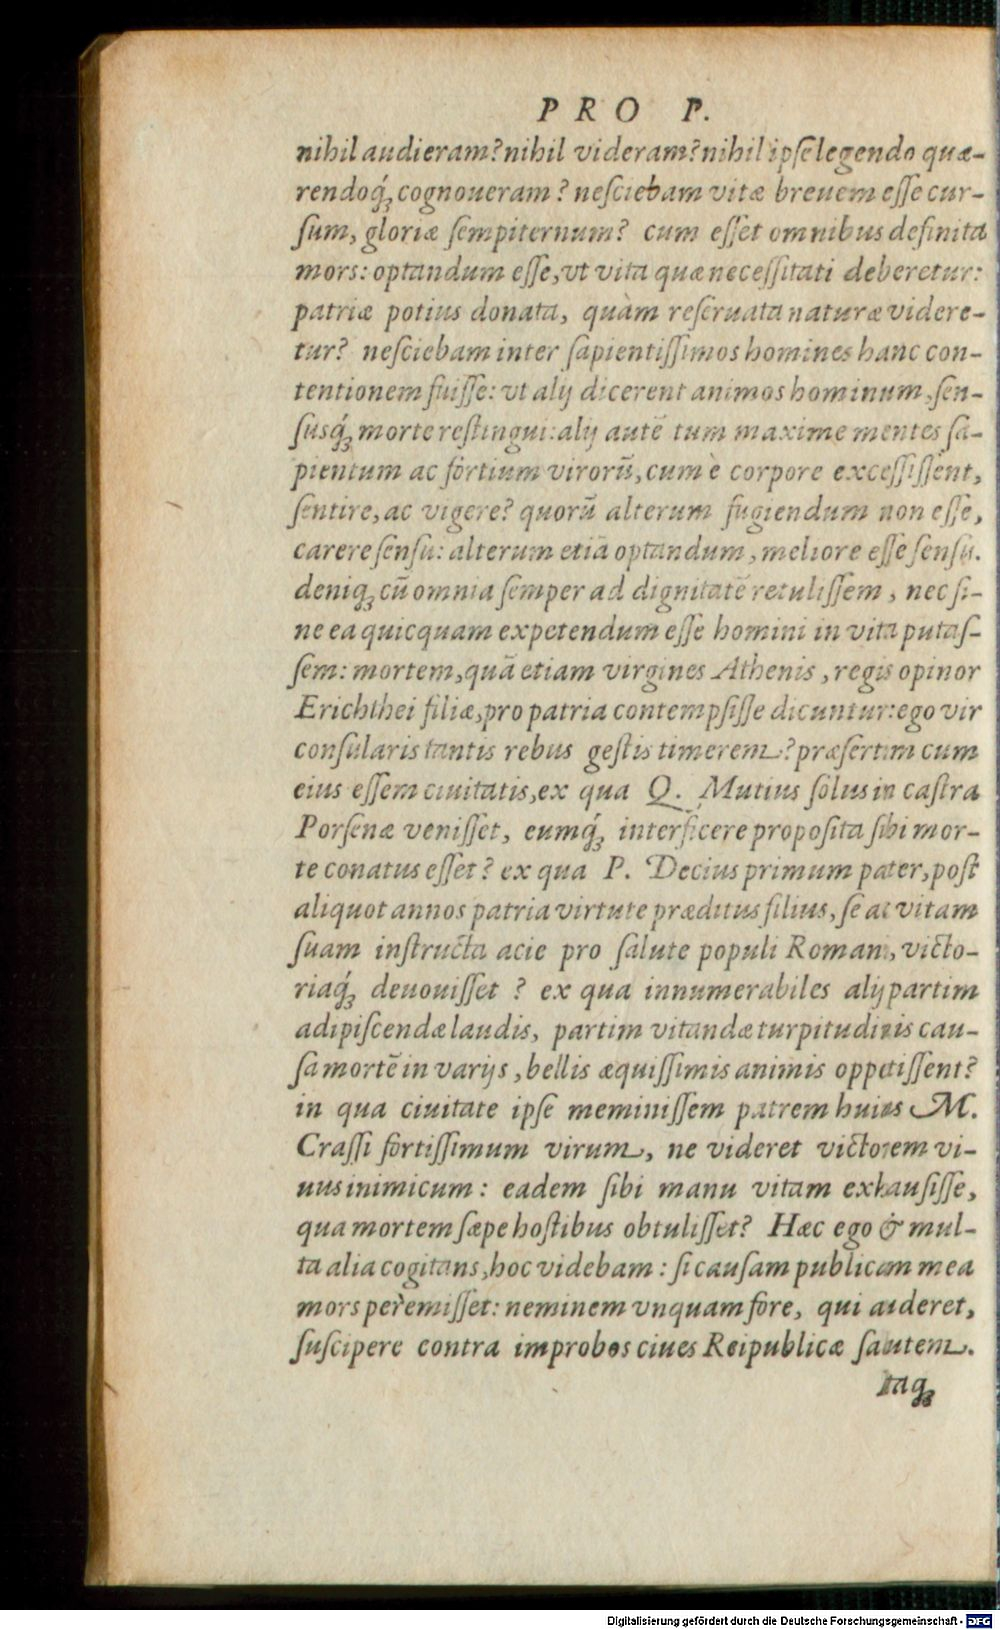 PRO P.
nihil audieram? nihil videram? nihil ipſe legendo quæ-
rendoq́ꝫ cognoueram? neſciebam vitæ breuem eſſe cur-
ſum, gloriæ ſempiternum? cum eſſet omnibus definita
mors: optandum eſſe, vt vita quæ neceſſitati deberetur:
patriæ potius donata, quàm reſeruata naturæ videre-
tur? neſciebam inter ſapientiſſimos homines hanc con-
tentionem fuiſſe: vt alij dicerent animos hominum, ſen-
ſusq́ꝫ morte reſtingui: alij autē tum maxime mentes ſa-
pientum ac fortium virorū, cum è corpore exceſſiſſent,
ſentire, ac vigere? quorū alterum fugiendum non eſſe,
carere ſenſu: alterum etiā optandum, meliore eſſe ſenſu.
deniqꝫ cū omnia ſemper ad dignitatē retuliſſem, nec ſi-
ne ea quicquam expetendum eſſe homini in vita putaſ-
ſem: mortem, quā etiam virgines Athenis, regis opinor
Erichthei filiæ, pro patria contempſiſſe dicuntur: ego vir
conſularis tantis rebus geſtis timerem? præſertim cum
eius eſſem ciuitatis, ex qua Q. Mutius ſolus in caſtra
Porſenæ veniſſet, eumq́ꝫ interficere propoſita ſibi mor-
te conatus eſſet? ex qua P. Decius primum pater, poſt
aliquot annos patria virtute præditus filius, ſe ac vitam
ſuam inſtructa acie pro ſalute populi Romani, victo-
riaq́ꝫ deuouiſſet? ex qua innumerabiles alij partim
adipiſcendæ laudis, partim vitandæ turpitudinis cau-
ſa mortē in varijs, bellis æquiſſimis animis oppetiſſent?
in qua ciuitate ipſe meminiſſem patrem huius M.
Craſſi fortiſſimum virum, ne videret victorem vi-
uus inimicum: eadem ſibi manu vitam exhauſiſſe,
qua mortem ſæpe hoſtibus obtuliſſet? Hæc ego & mul-
ta alia cogitans, hoc videbam: ſi cauſam publicam mea
mors peremiſſet: neminem vnquam fore, qui auderet,
ſuſcipere contra improbos ciues Reipublicæ ſalutem.
Itaqꝫ
Digitalisierung gefördert durch die Deutsche Forschungsgemeinschaft - DFG